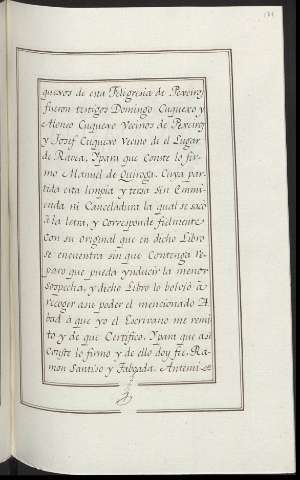 queyros de esta Feligresia de Pexeiros
fueron testigos Domingo Cuquexo y
Alonso Cuquexo Vecinos de Pexeiros
y Josef Cuquexo Vecino de el Lugar
de Rarea, Ypara que Conste lo fir-
mo Manuel de Quiroga. Cuya par-
tida esta limpia y tersa sin Enmi-
enda ni Canceladura la qual se sacó
à la letra, y corresponde fielmente
con su original que en dicho Libro
se encuentra sin que Contenga re-
paro que pueda ynducir la menor
sospecha, y dicho Libro lo bolvió à
recoger asu poder el mencionado A-
bad à que yo el Escrivano me remi-
to y de que Certifico. Ypara que asi
conste lo firmo y de ello doy fee. Ra-
mon Santiso y Taboada. Antemi =